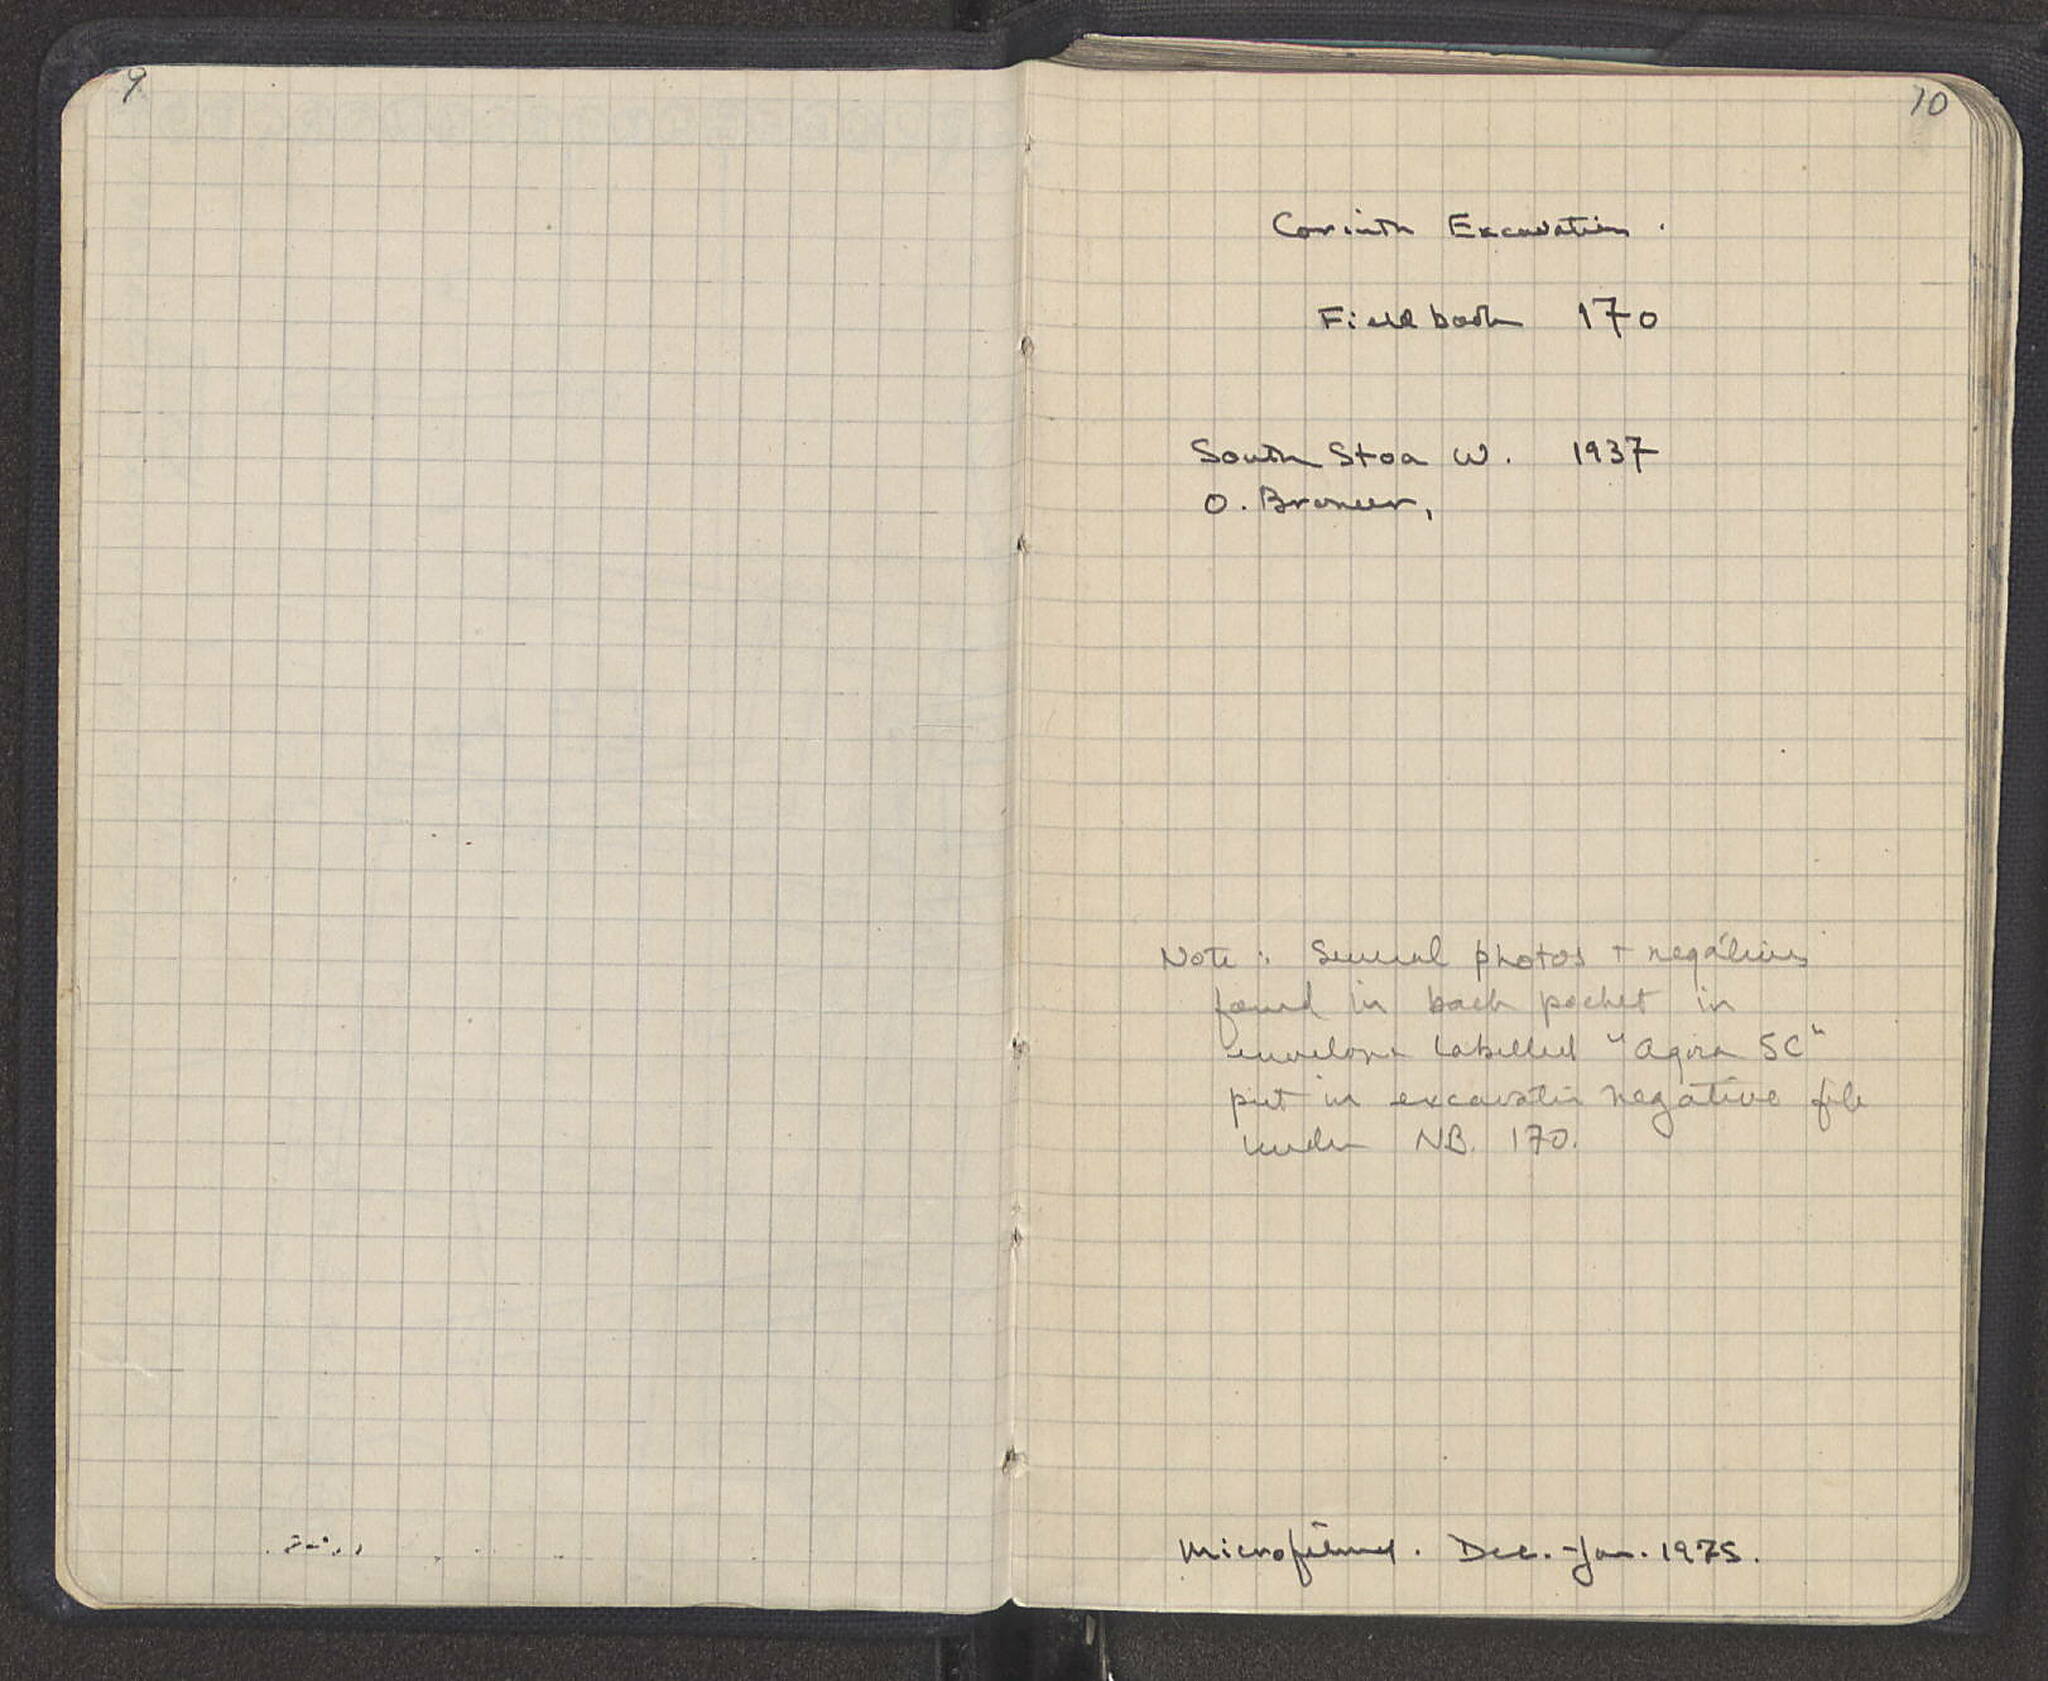 9
10
Corinth Excavation.
Field book 170
South Stoa W. 1937
O. Broneer,
Note: Several photos + negatives
found in back pocket in
envelope labelled "Agora SC"
put in excavation negative file
under NB. 170.
Microfilmed. Dec.-Jan. 1975.